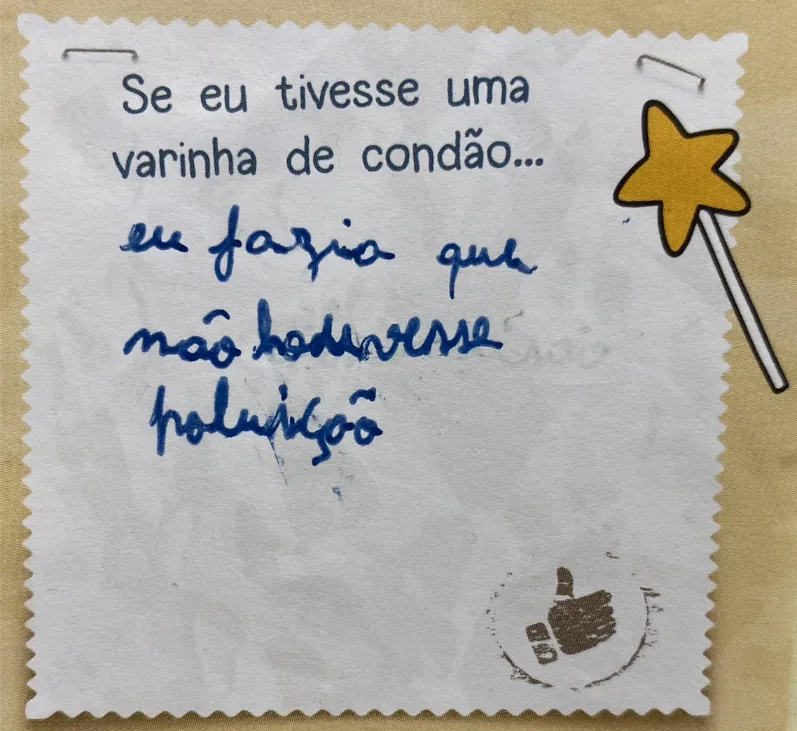 Se eu tivesse uma
varinha de condão...
eu fazia que
não houvesse
poluição